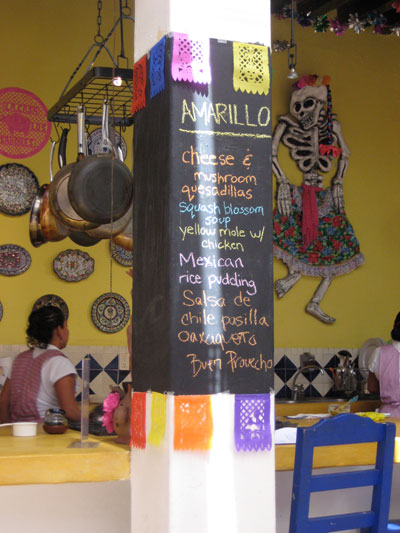 AMARILLO
cheese &
mushroom
quesadillas
squash blossom
soup
yellow mole w/
chicken
Mexican
rice pudding
Salsa de
chile pasilla
oaxaqueño
Buen Provecho